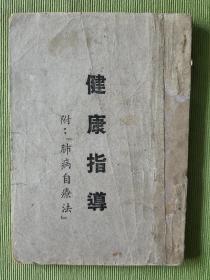 健康指導
附：「肺病自療法」